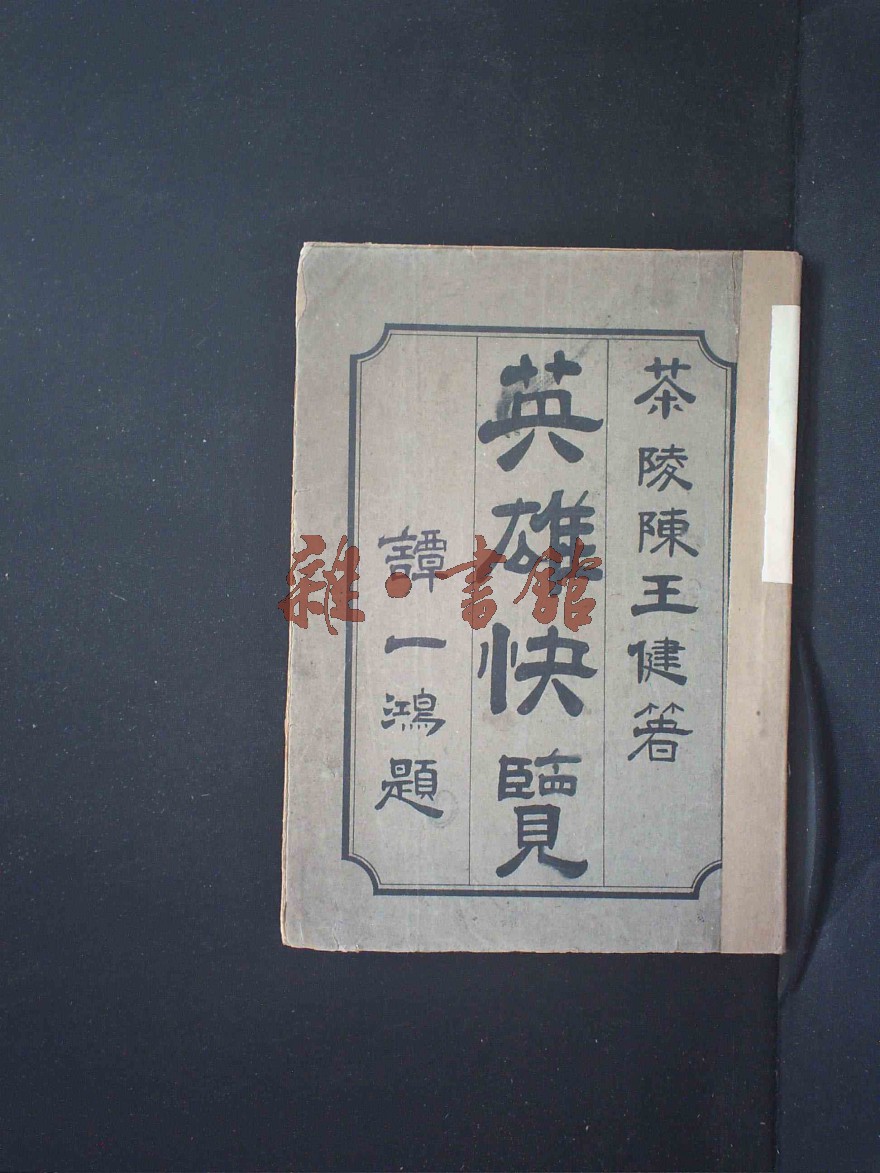 茶陵陳王健箸
英雄快覽
譚一鴻題
雜·書館